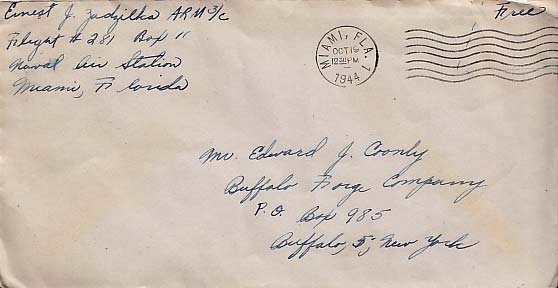 Ernest J. Zadzilka ARM 3/c
Flight # 281 Box 11
Naval Air Station
Miami, Florida
Free
MIAMI, FLA. 1
OCT 19
12 30 PM
1944
Mr. Edward J. Coonly
Buffalo Forge Company
P.O. Box 985
Buffalo, 5, New York